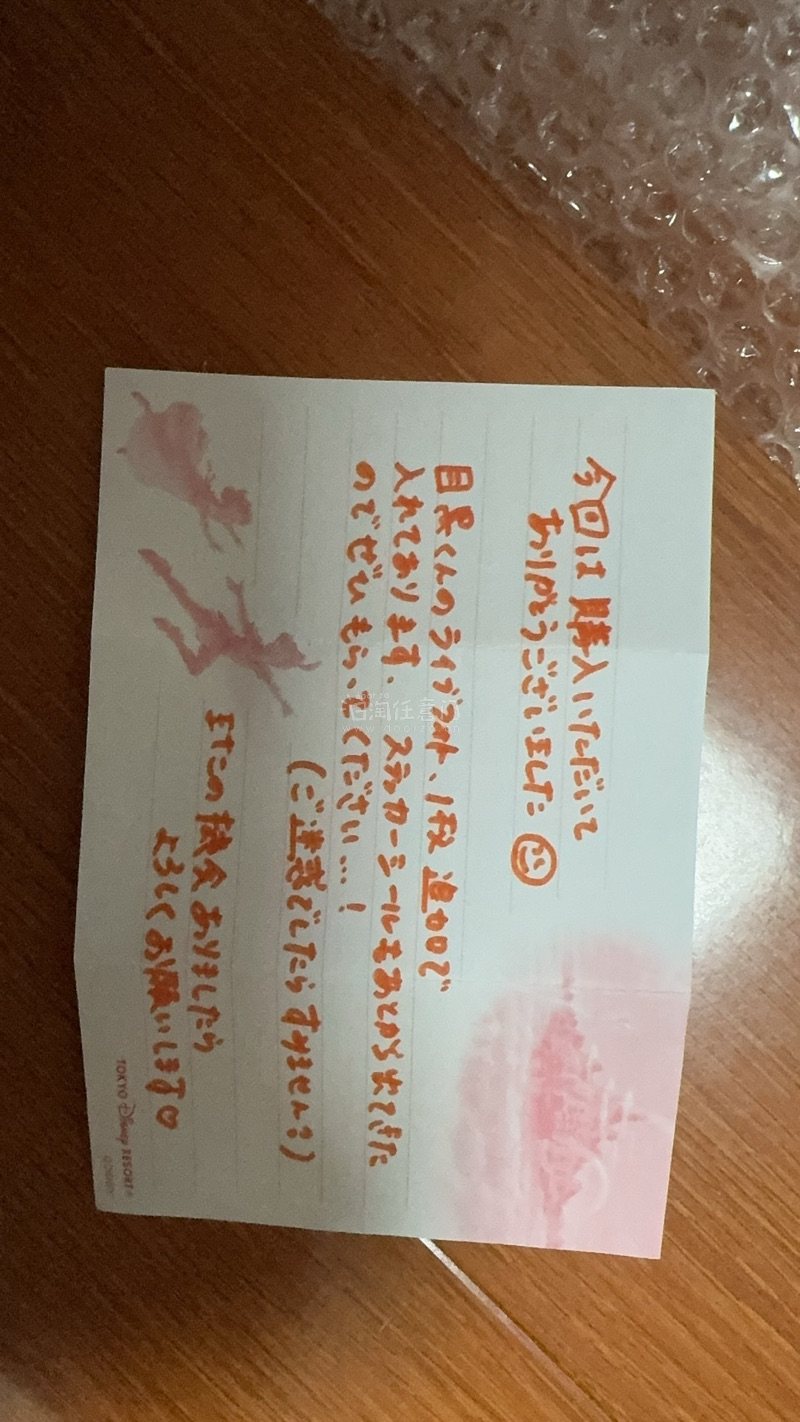 今回は購入いただいて
ありがとうございました
目黒くんのライブフォト、1枚 追加で
入れてあります、ステッカーシールもあとから出てきた
のでぜひもらってください…!
(ご迷惑でしたらすみません💦)
またの機会ありましたら
よろしくお願いします。
TOKYO Disney RESORT®
©Disney